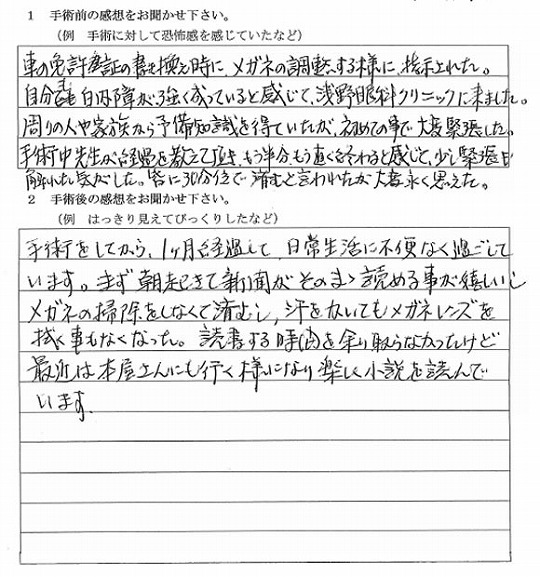 1 手術前の感想をお聞かせ下さい。
(例 手術に対して恐怖感を感じていたなど)
車の免許証の書き換え時に、メガネの調整する様に、指示された。
自分でも白内障が強く成っていると感じて、浅野眼科クリニックに来ました。
周りの人や家族から予備知識を得ていたが、初めての事で大変緊張した。
手術中先生が経過を教えて頂き、もう半分、もう直ぐ終わると感じと、少し緊張が
解れた気がした。皆に30分位で済むと言われたが大変永く思えた。
2 手術後の感想をお聞かせ下さい。
(例 はっきり見えてびっくりしたなど)
手術をしてから、1ヶ月経過して、日常生活に不便なく過ごして
います。まず朝起きて新聞がそのまゝ読める事が嬉しいし
メガネの掃除をしなくて済むし、汗をかいてもメガネレンズを
拭く事もなくなった。読書する時間を余り取らなかったけど
最近は本屋さんにも行く様になり楽しく小説を読んで
います。